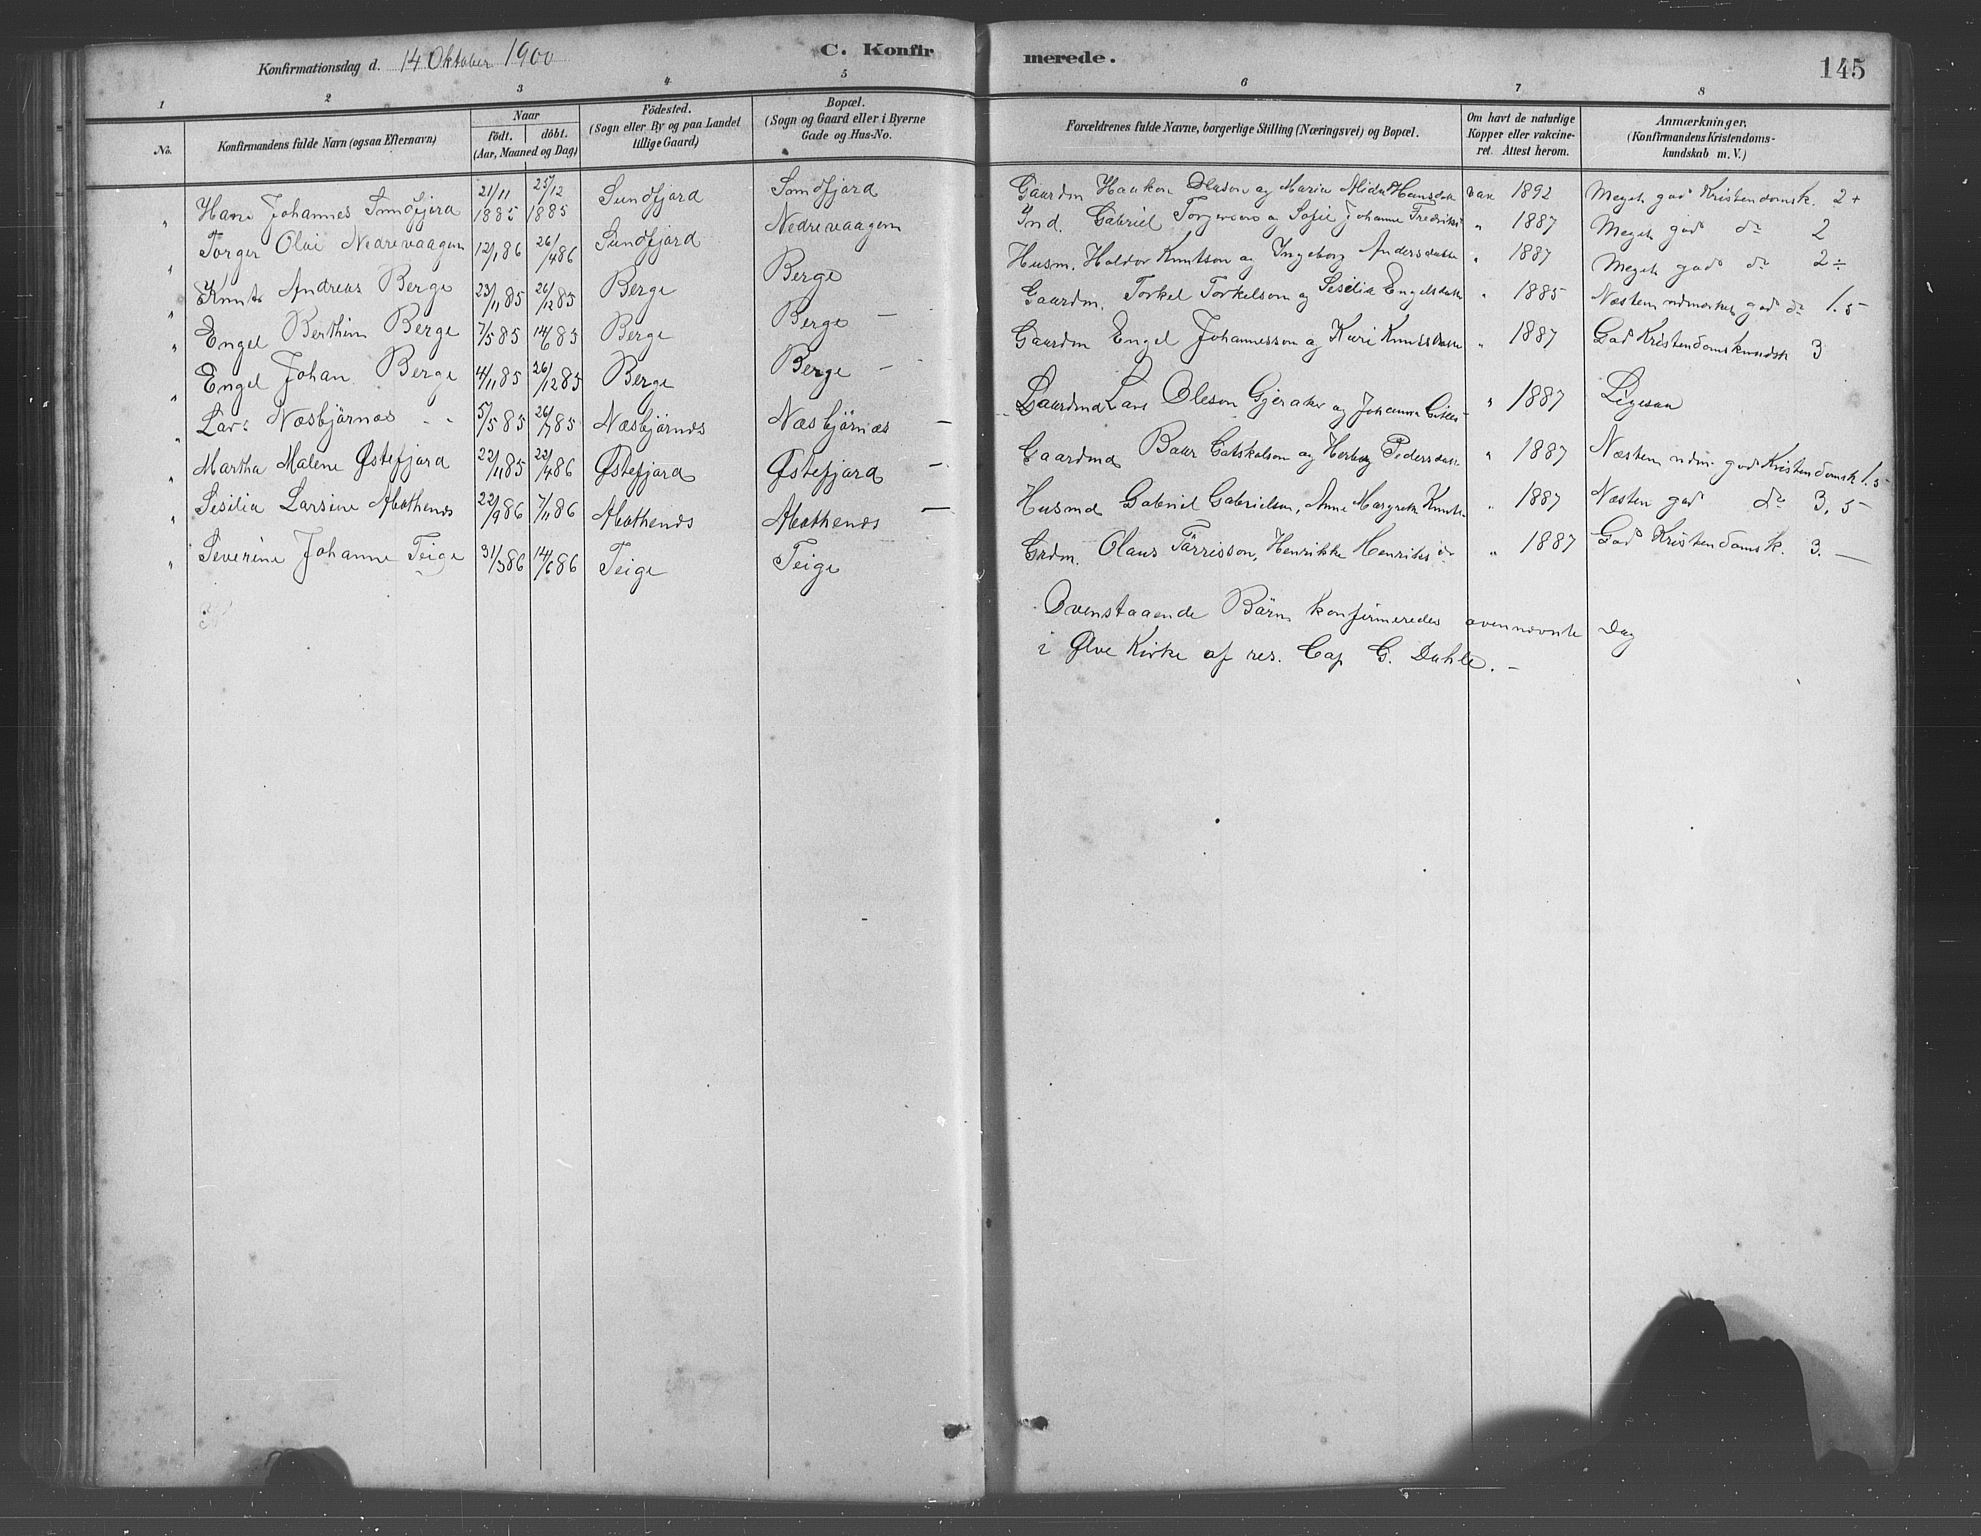 Konfirmationsdag d. 14 Oktober 1900 C. Konfirmerede. 145
1 2 3 4 5 6 7 8
No. Konfirmandens fulde Navn (ogsaa Efternavn) Naar födt. döbt. (Aar, Maaned og Dag) Födested. (Sogn eller By og paa Landet tillige Gaard) Bopæl. (Sogn og Gaard eller i Byerne Gade og Hus-No. Forældrenes fulde Navne, borgerlige Stilling (Næringsvei) og Bopæl. Om havt de naturlige Kopper eller vakcineret. Attest herom. Anmærkninger, (Konfirmandens Kristendomskundskab m. V.)
" Hans Johannes Sundfjord 21/11 1885 25/12 1885 Sundfjord Sundfjord Gaardm Haakon Olason og Maria Hansdatter vax 1892 Meget god Kristendomsk. 2+
" Torger Olai Nedrevaagen 12/1 86 26/4 86 Sundfjord Nedrevaagen Ind. Gabriel og Sofie Johanne " 1887 Meget god do 2
" Knut Andreas Berge 23/11 85 26/12 85 Berge Berge Husm. Haldor Knutson og Ingeborg Andersdatter " 1887 Meget god do 2÷
" Engel Berthin Berge 7/5 85 14/6 85 Berge Berge — Gaardm. Torkel Torkelson og Sesilia Engelsdatter " 1885 Næsten udmærket god do 1.5
" Engel Johan Berge 4/11 85 26/12 85 Berge Berge — Gaardm Engel Johannesson og Kari Knutsdatter " 1887 God Kristendomskundsk 3
" Lars Næsbjörnæs 5/5 85 26/7 85 Næsbjörnæs Næsbjörnæs — Gaardmd Lars Oleson Gjeraker og Johanna " 1887 Ligesaa
" Martha Malene Østefjord 22/11 85 22/4 86 Østefjord Østefjord — Gaardmd og Herborg Pedersdatter " 1887 Næsten udm. god Kristendomsk 1.5
" Sesilia Larsine 22/9 86 7/11 86 — Husmd Gabriel Gabrielson, Anne Margrete Knuts " 1887 Næsten god do 3,5
" Severine Johanne Teige 31/3 86 14/6 86 Teige Teige Grdm. Olaus Tärrisson, Henrikke Henriksd " 1887 God Kristendomsk. 3. —
Ovenstaaende Börn konfirmeredes ovennævnte Dag
i Ølve Kirke af res. Cap G. Dahle. —